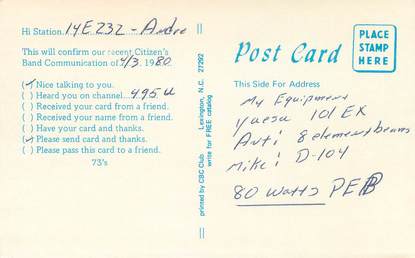 Hi Station 14E232 - Andre
This will confirm our recent Citizen's
Band Communication of 4/3, 1980
(✓) Nice talking to you.
( ) Heard you on channel 495u
( ) Received your card from a friend.
( ) Received your name from a friend.
( ) Have your card and thanks.
(✓) Please send card and thanks.
( ) Please pass this card to a friend.
73's
printed by CBC Club Lexington, N.C. 27292
write for FREE catalog
Post Card
PLACE
STAMP
HERE
This Side For Address
My Equipment
Yaesu 101 EX
Ant: 8 element beams
Mike: D-104
80 Watts PEP